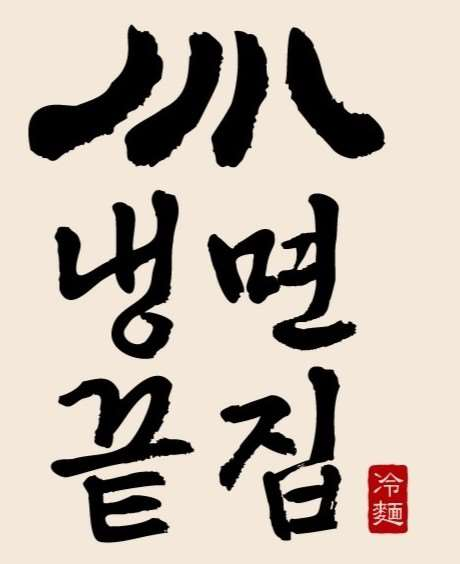 냉면
끝집
冷
麵